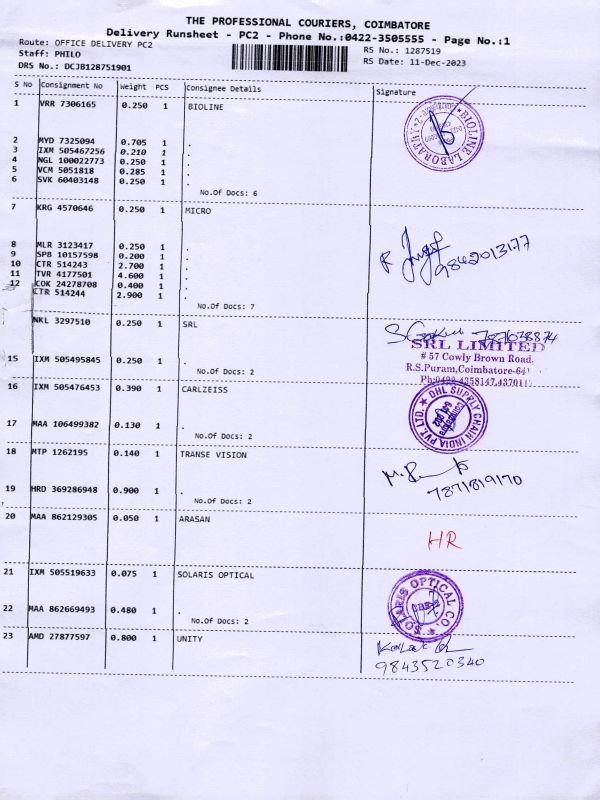 THE PROFESSIONAL COURIERS, COIMBATORE
Delivery Runsheet - PC2 - Phone No.:0422-3505555 - Page No.:1
Route: OFFICE DELIVERY PC2
RS No.: 1287519
Staff: PHILO
RS Date: 11-Dec-2023
DRS No.: DCJB128751901
S No Consignment No Weight PCS Consignee Details Signature
1 VRR 7306165 0.250 1 BIOLINE
BIOLINE LABORATHY
2 MYD 7325094 0.705 1 .
3 IXM 505467256 0.210 1 .
4 NGL 100022773 0.250 1 .
5 VCM 5051818 0.285 1 .
6 SVK 60403148 0.250 1 .
No.Of Docs: 6
7 KRG 4570646 0.250 1 MICRO
8 MLR 3123417 0.250 1 .
9 SPB 10157598 0.200 1 .
10 CTR 514243 2.700 1 .
11 TVR 4177501 4.600 1 .
12 COK 24278708 0.400 1 .
CTR 514244 2.900 1 .
9842013177
No.Of Docs: 7
NKL 3297510 0.250 1 SRL
SRL LIMITED
# 57 Cowly Brown Road,
15 IXM 505495845 0.250 1 .
R.S.Puram,Coimbatore-641
No.Of Docs: 2
Ph:0422-4358147,437011
16 IXM 505476453 0.390 1 CARLZEISS
DHL SUPPLY CHAIN INDIA PVT. LTD.
17 MAA 106499382 0.130 1 .
No.Of Docs: 2
18 MTP 1262195 0.140 1 TRANSE VISION
19 HRD 369286948 0.900 1 .
7871819170
No.Of Docs: 2
20 MAA 862129305 0.050 1 ARASAN
HR
21 IXM 505519633 0.075 1 SOLARIS OPTICAL
SOLARIS OPTICAL CO.
22 MAA 862669493 0.480 1 .
No.Of Docs: 2
23 AMD 27877597 0.800 1 UNITY
9843520340